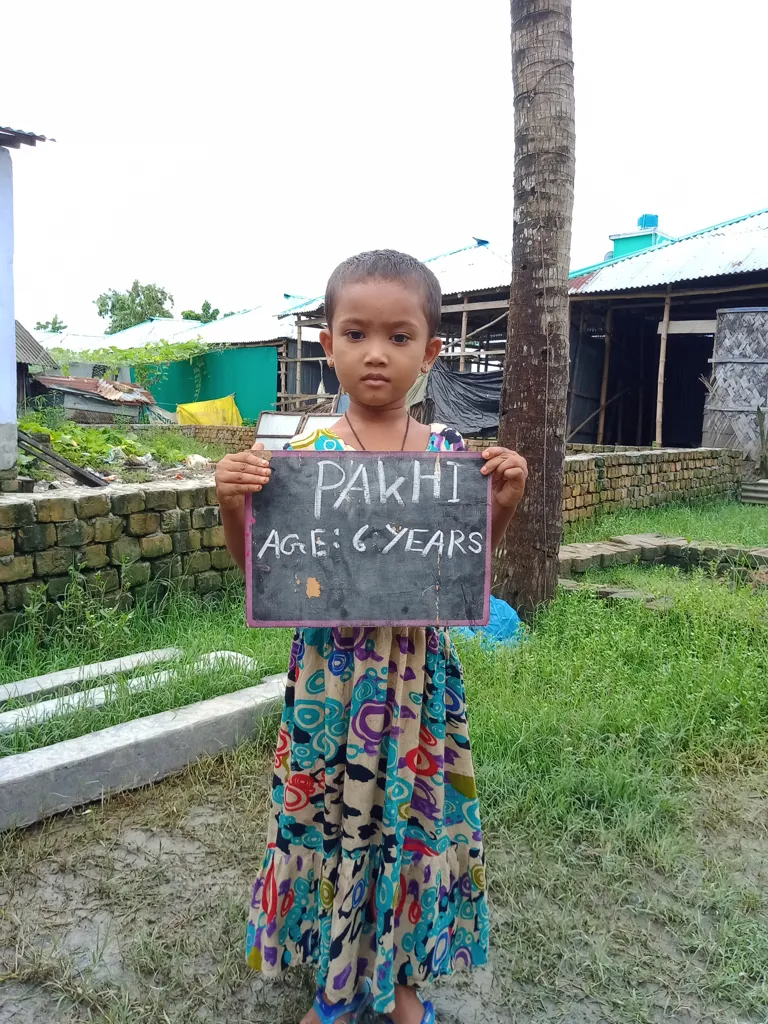 PAKHI
AGE: 6 YEARS